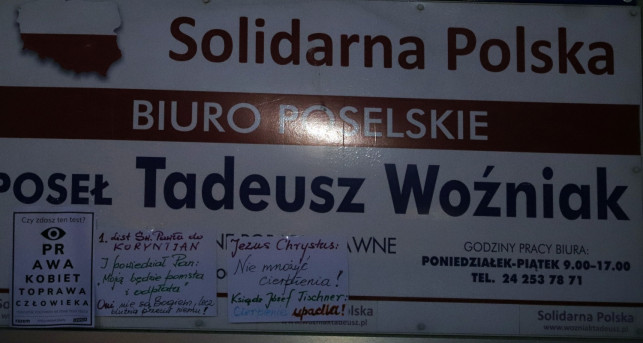 Solidarna Polska
BIURO POSELSKIE
POSEŁ Tadeusz Woźniak
Czy zdasz ten test?
PR
AWA
KOBIET
TOPRAWA
CZŁOWIEKA
1. list Św. Pawła do
KORYNTIAN
I powiedział Pan:
"Moja będzie pomsta
i odpłata"
Jezus Chrystus:
Nie mnożyć
cierpienia!
Ksiądz Józef Tischner:
upadla!
GODZINY PRACY BIURA:
PONIEDZIAŁEK-PIĄTEK 9.00-17.00
TEL. 24 253 78 71
Solidarna Polska